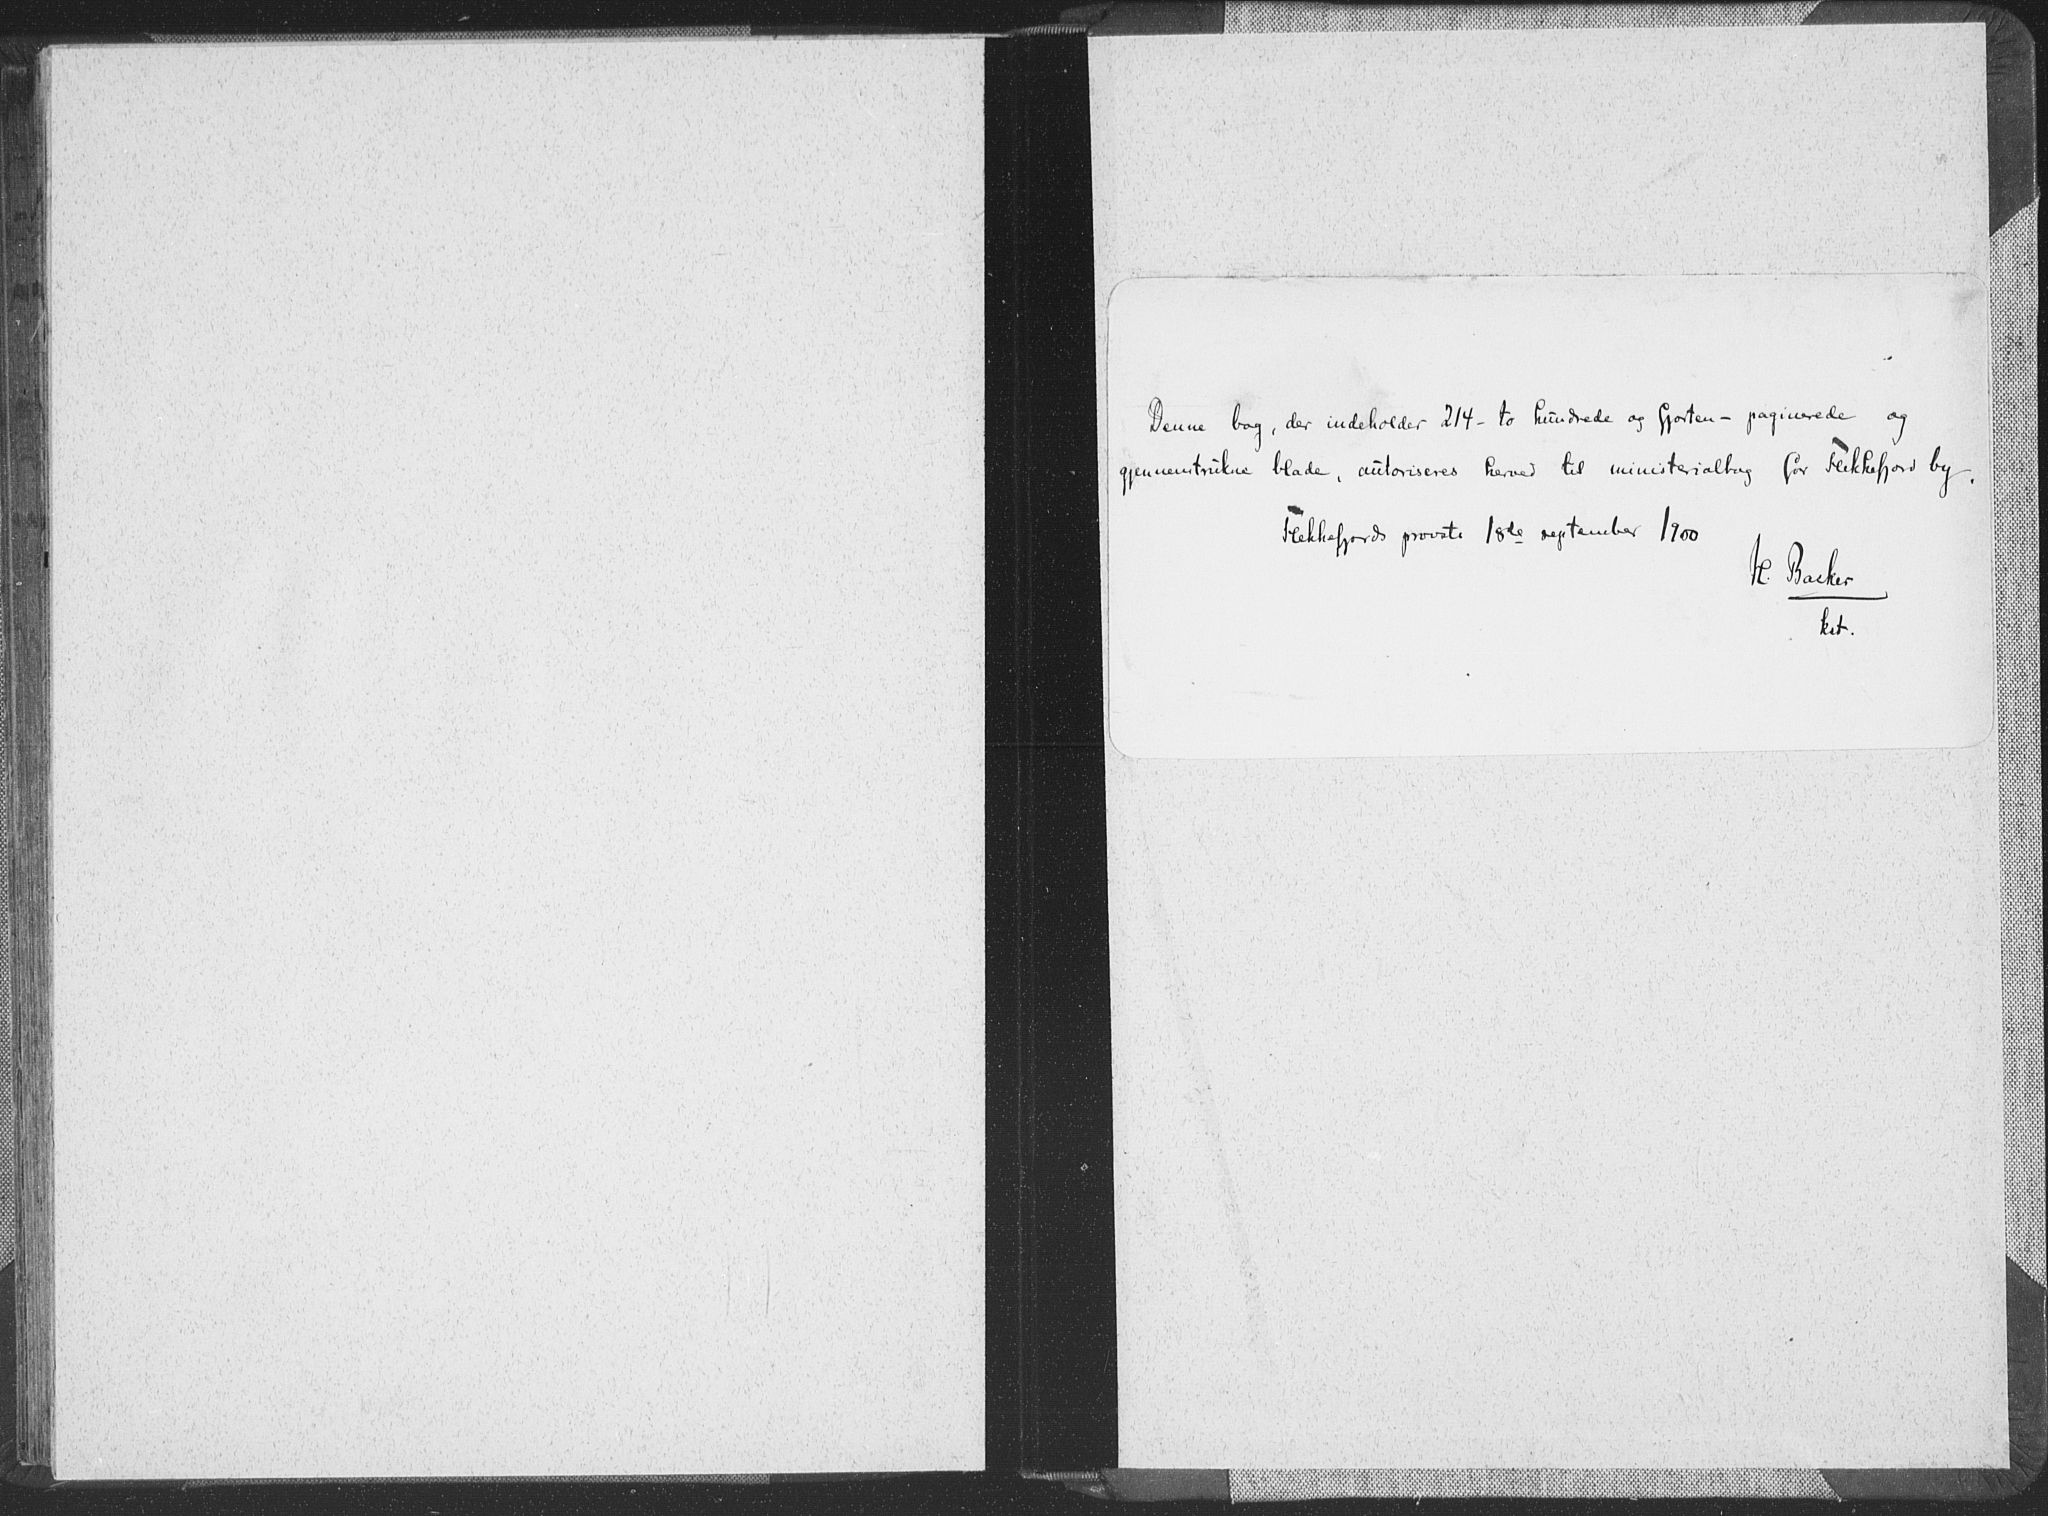 Denne bog, der indeholder 214 - to hundrede og fjorten - paginerede og
gjennemtrukne blade, autoriseres herved til ministerialbog for Flekkefjord by.
Flekkefjords provsti 18de september 1900
H. Barker
kst.